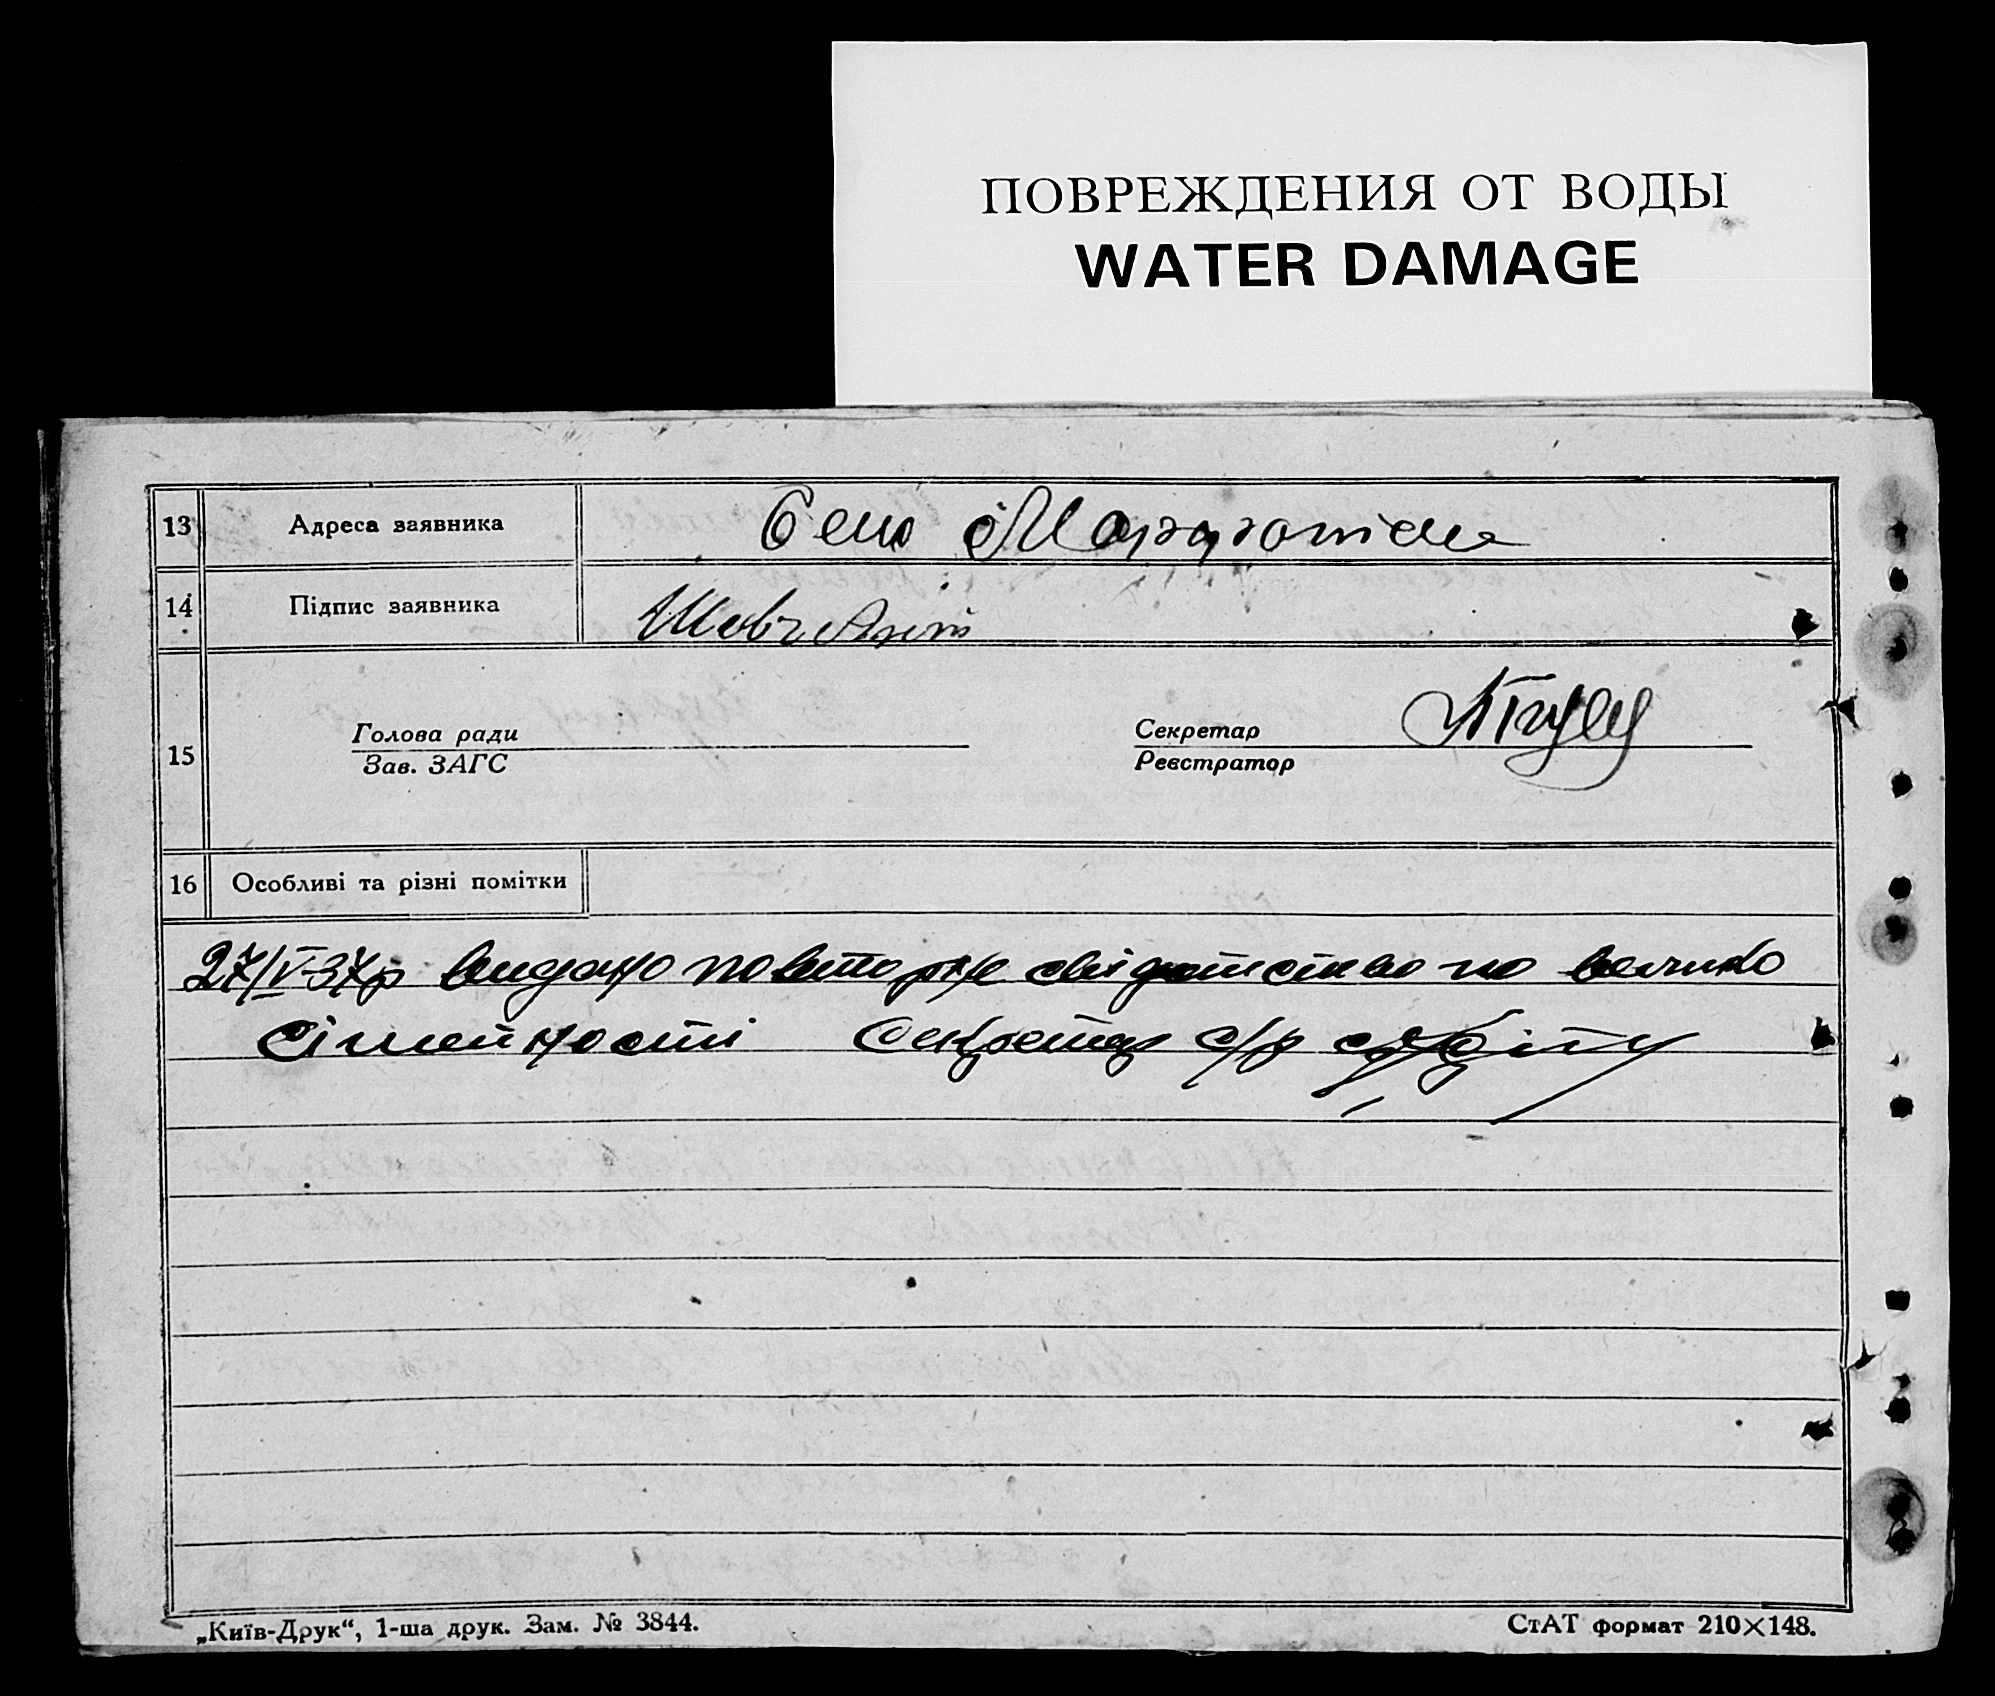 ПОВРЕЖДЕНИЯ ОТ ВОДЫ
WATER DAMAGE
13 Адреса заявника Село
14 Підпис заявника
Голова ради Секретар
15
Зав. ЗАГС Реєстратор
16 Особливі та різні помітки
27/V-37р видано повторне свідотство по велико
сімейності Секретар с/р
„Київ-Друк“, 1-ша друк. Зам. № 3844. СтАТ формат 210×148.